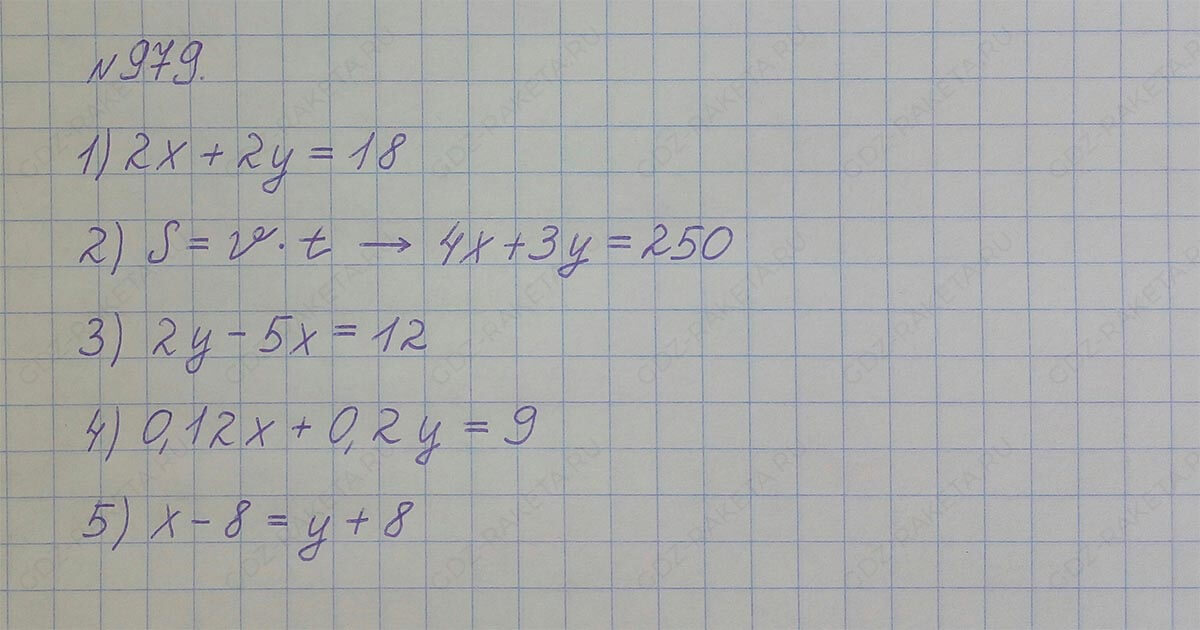 №979.
1) 2x + 2y = 18
2) S = v · t → 4x + 3y = 250
3) 2y - 5x = 12
4) 0,12x + 0,2y = 9
5) x - 8 = y + 8
GDZ-RAKETA.RU